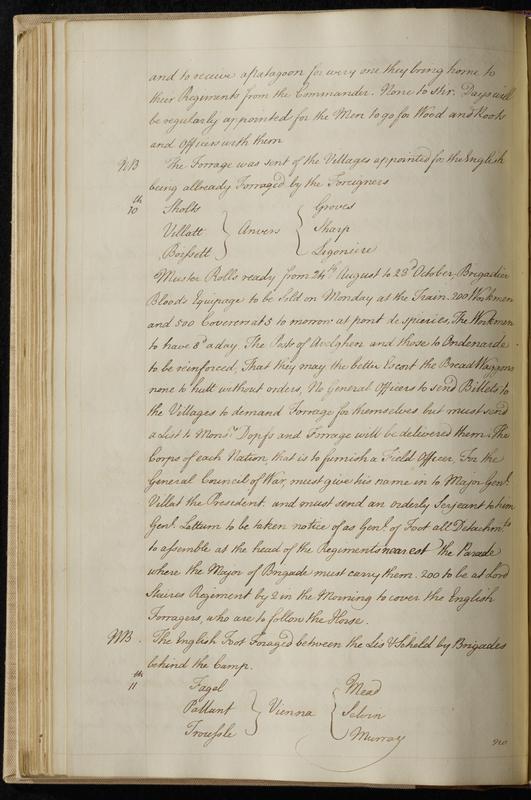 and to receive a patagoon for every one they bring home to
their Regiments from the Commander. None to stir. Days will
be regularly appointed for the Men to go for Wood and Roots
and Officers with them
NB The Forrage was sent of the Villages appointed for the English
being allready Forraged by the Foreigners
th
10 Sholts } Anvers { Groves
Villatt Sharp
Boissett Ligoniere
Muster Rolls ready from 24th August to 23d October, Brigadier
Bloods Equipage to be Sold on Monday at the Train. 200 Workmen
and 500 Coverers at 5 to morrow at pont de spieries, The Workmen
to have 8d a day. The Posts of Avelghen and those to Oudenarde
to be reinforced, That they may the better Escort the Bread Waggons
none to hutt without orders, No General Officers to send Billets to
the Villages to demand Forrage for themselves but must send
a List to Monsr Dopfs and Forrage will be delivered them. The
Corps of each Nation that is to furnish a Field Officer, For the
General Council of War, must give his name in to Major Genl.
Villat the President. and must send an orderly Serjeant to him
Genl. Lottum to be taken notice of as Genl. of Foot all Detachmts
to assemble at the head of the Regiments nearest the Parade
where the Major of Brigade must carry them. 200 to be at Lord
Stairs Regiment by 2 in the Morning to cover the English
Forragers, who are to follow the Horse.
NB. The English Foot Foraged between the Lis & Scheld by Brigades
behind the Camp.
th
11 Fagel } Vienna { Mead
Pallant Selvin
Troussle Murray